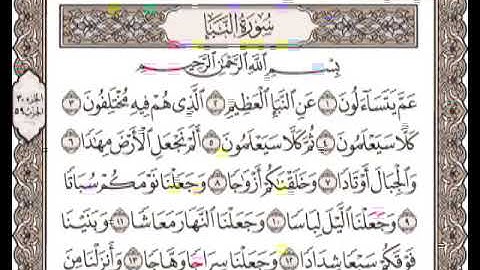 سُورَةُ النَّبَإِ
بِسْمِ اللَّهِ الرَّحْمَٰنِ الرَّحِيمِ
عَمَّ يَتَسَاءَلُونَ ١ عَنِ النَّبَإِ الْعَظِيمِ ٢ الَّذِي هُمْ فِيهِ مُخْتَلِفُونَ ٣
كَلَّا سَيَعْلَمُونَ ٤ ثُمَّ كَلَّا سَيَعْلَمُونَ ٥ أَلَمْ نَجْعَلِ الْأَرْضَ مِهَادًا ٦
وَالْجِبَالَ أَوْتَادًا ٧ وَخَلَقْنَاكُمْ أَزْوَاجًا ٨ وَجَعَلْنَا نَوْمَكُمْ سُبَاتًا
٩ وَجَعَلْنَا اللَّيْلَ لِبَاسًا ١٠ وَجَعَلْنَا النَّهَارَ مَعَاشًا ١١ وَبَنَيْنَا
فَوْقَكُمْ سَبْعًا شِدَادًا ١٢ وَجَعَلْنَا سِرَاجًا وَهَّاجًا ١٣ وَأَنزَلْنَا مِنَ
الجزء ٣٠
الحزب ٥٩